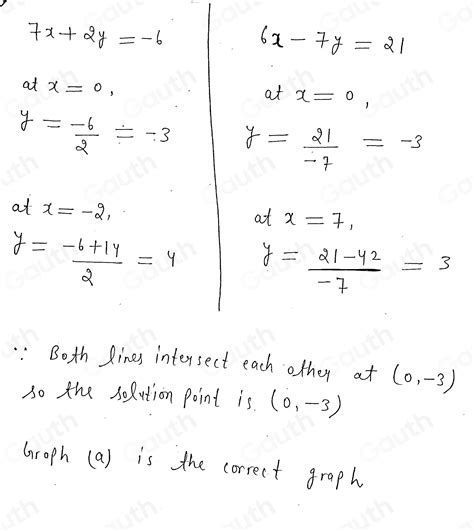 7x + 2y = -6
at x = 0,
y = -6/2 = -3
at x = -2,
y = (-6+14)/2 = 4
6x - 7y = 21
at x = 0,
y = 21/-7 = -3
at x = 7,
y = (21-42)/-7 = 3
∵ Both lines intersect each other at (0,-3)
so the solution point is (0,-3)
Graph (a) is the correct graph
Gauth